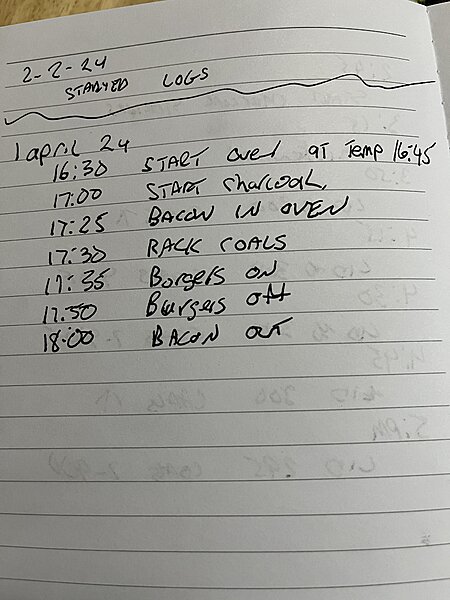 2-2-24
STARTED LOGS
1 april 24
16:30 START oven at Temp 16:45
17:00 START Charcoal
17:25 BACON IN OVEN
17:30 RACK COALS
17:35 Borgers on
17:50 Burgers off
18:00 BACON out